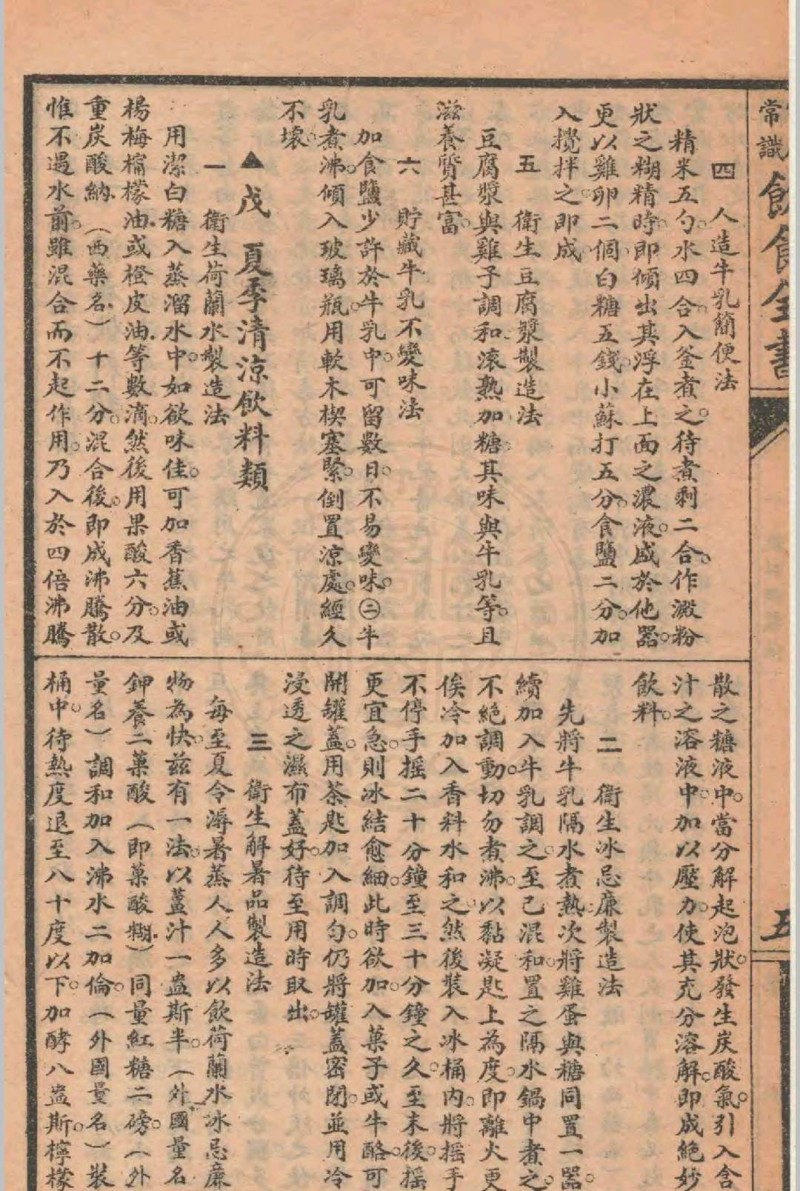 常識
飲食全書
四　人造牛乳簡便法
精米五勺。水四合。入釜煮之。待煮剩二合。作澱粉
狀之糊精時。即傾出其浮在上面之濃液。盛於他器。
更以雞卵二個。白糖五錢。小蘇打五分。食鹽二分。加
入攪拌之。即成。
五　衛生豆腐漿製造法
豆腐漿與雞子調和。滾熱加糖。其味與牛乳等。且
滋養質甚富。
六　貯藏牛乳不變味法
加食鹽少許於牛乳中。可留數日。不易變味。㊁牛
乳煮沸。傾入玻璃瓶。用軟木楔塞緊。倒置涼處。經久
不壞。
▲戊　夏季清涼飲料類
一　衛生荷蘭水製造法
用潔白糖入蒸溜水中。如欲味佳。可加香蕉油或
楊梅檸檬油。或橙皮油等數滴。然後用果酸六分。及
重炭酸納。（西藥名）十二分。混合後。即成沸騰散。
惟不遇水前。雖混合而不起作用。乃入於四倍沸騰
散之糖液中。當分解起泡狀。發生炭酸氣。引入含
汁之溶液中。加以壓力。使其充分溶解。即成絕妙
飲料。
二　衛生冰忌廉製造法
先將牛乳隔水煮熱。次將雞蛋與糖同置一器。
續加入牛乳調之。至已混和。置之隔水鍋中煮之。
不絕調動。切勿煮沸。以黏凝匙上為度。即離火更
俟冷。加入香料水和之。然後裝入冰桶內。將搖手
不停手搖二十分鐘至三十分鐘之久。至末後。搖
更宜急。則冰結愈細。此時欲加入菓子或牛酪。可
開罐蓋。用茶匙加入調勻。仍將罐蓋密閉。並用冷
浸透之濕布蓋好。待至用時取出。
三　衛生解暑品製造法
每至夏令。溽暑蒸人。人多以飲荷蘭水冰忌廉
物為快。茲有一法。以薑汁一盎斯半。（外國量名
鉀養二菓酸（即菓酸糊）同量。紅糖二磅。（外
量名）調和加入沸水二加倫。（外國量名）裝
桶中。待熱度退至八十度以下。加酵八盎斯。檸檬
五